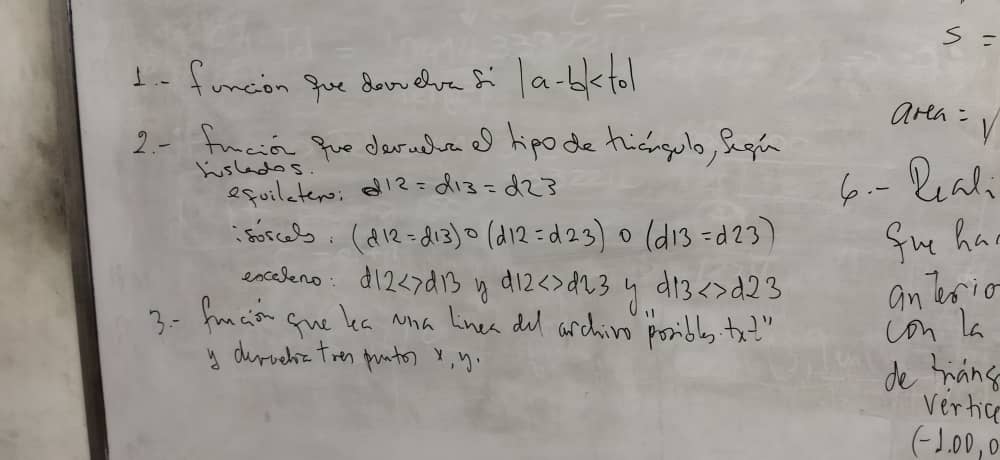 1.- función que devuelva si |a-b|<tol
2.- función que devuelva el tipo de triángulo, según
sus lados.
equilatero: d12 = d13 = d23
isósceles: (d12 = d13) o (d12 = d23) o (d13 = d23)
escaleno: d12<>d13 y d12<>d23 y d13<>d23
3.- función que lea una línea del archivo "posibles.txt"
y devuelva tres puntos x, y.
s =
area = √
6.- Reali
que ha
anterio
con la
de triáng
vértice
(-1.00, 0